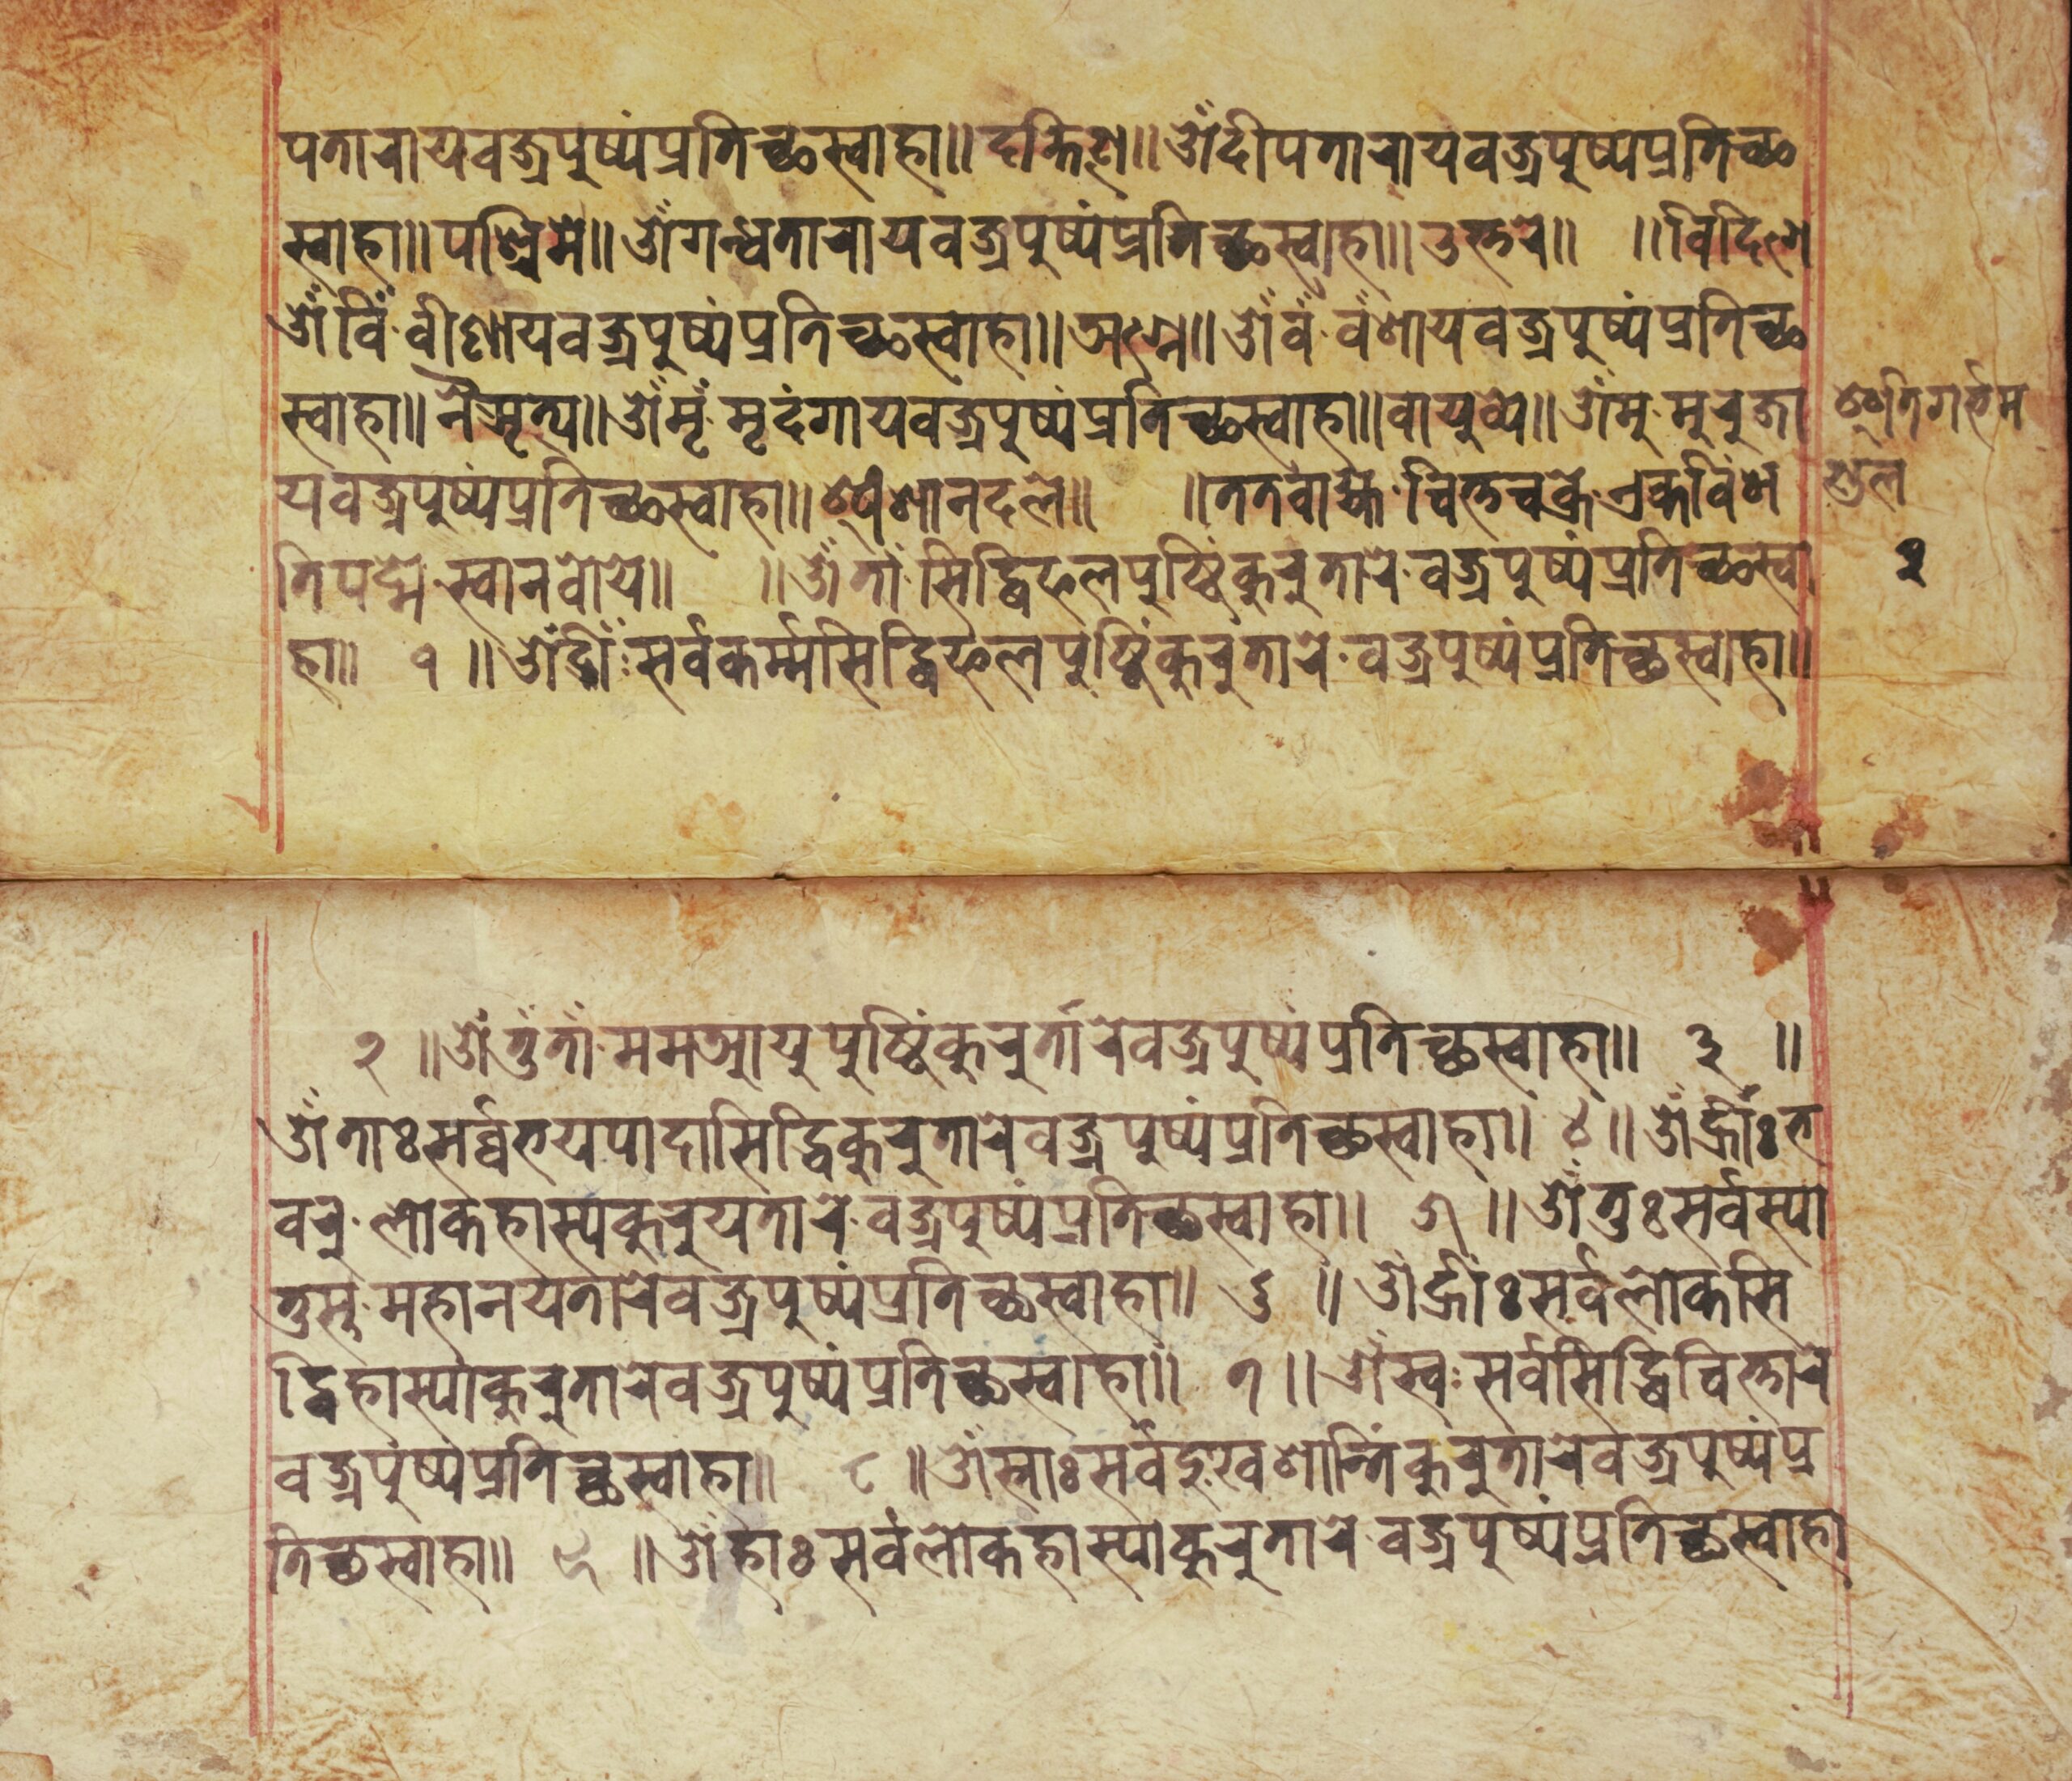 पतारायवज्रपुष्पंप्रतिच्छस्वाहा॥ दक्षिण॥ ओंँदीपतारायवज्रपुष्पंप्रतिच्छ
स्वाहा॥ पश्चिमे॥ ओंँगन्धतारायवज्रपुष्पंप्रतिच्छस्वाहा॥ उत्तरे॥ ॥विदिगे
ओंँ विँ वीणायवज्रपुष्पंप्रतिच्छस्वाहा॥ अग्ने॥ ओंँ वँ वंशायवज्रपुष्पंप्रतिच्छ
स्वाहा॥ नैऋत्य॥ ओंँ मृँ मृदंगायवज्रपुष्पंप्रतिच्छस्वाहा॥ वायुव्ये॥ ओंँ मु मुरुजा
यवज्रपुष्पंप्रतिच्छस्वाहा॥ शानदले॥ ॥ततवाह्ये चित्तचक्रे एकविंश
तिपद्मे स्वानवोये॥ ॥ओंँ ताँ सिद्धिफलपुष्टिंकुरुतारे वज्रपुष्पंप्रतिच्छस्वा
हा॥ १ ॥ओंँ द्रीँः सर्वकर्म्मसिद्धिफलपुष्टिंकुरुतारे वज्रपुष्पंप्रतिच्छस्वाहा॥
इतिगर्भम
ण्डल
२
२ ॥ओंँ तुँ ताँ ममआयुपुष्टिंकुरुतारेवज्रपुष्पंप्रतिच्छस्वाहा॥ ३ ॥
ओंँताःसर्व्वभयपादासिद्धिकुरुतारेवज्रपुष्पंप्रतिच्छस्वाहा॥ ४॥ ओंँह्रीँःभ
वरु लोकहास्यकुरुयतारे वज्रपुष्पंप्रतिच्छस्वाहा॥ ५ ॥ ओंँतुःसर्वस्या
तुसु महानयतारेवज्रपुष्पंप्रतिच्छस्वाहा॥ ६ ॥ ओंँह्रीँःसर्वलोकसि
द्धिहास्याकुरुतारेवज्रपुष्पंप्रतिच्छस्वाहा॥ ७ ॥ ओंँस्वः सर्वसिद्धिचित्तारे
वज्रपुष्पंप्रतिच्छस्वाहा॥ ८ ॥ ओंँस्वाःसर्वदुखशान्तिंकुरुतारेवज्रपुष्पंप्र
तिच्छस्वाहा॥ ९ ॥ ओंँहाः सर्वलोकहास्याकुरुतारे वज्रपुष्पंप्रतिच्छस्वाहा